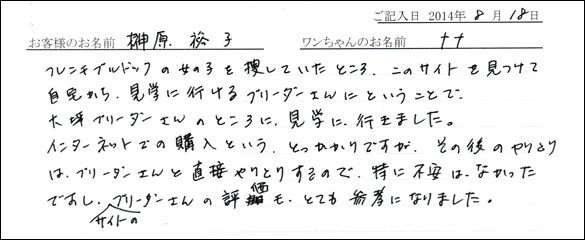 ご記入日 2014年 8月 18日
お客様のお名前 榊原 裕子 ワンちゃんのお名前 ナナ
フレンチブルドックの女の子を捜していたところ、このサイトを見つけて
自宅から、見学に行けるブリーダーさんにということで、
大坪ブリーダーさんのところに、見学に、行きました。
インターネットでの購入という、とっかかりですが、その後のやりとり
は、ブリーダーさんと直接やりとりするので、特に不安は、なかった
ですし、サイトのブリーダーさんの評価モ、とても参考になりました。